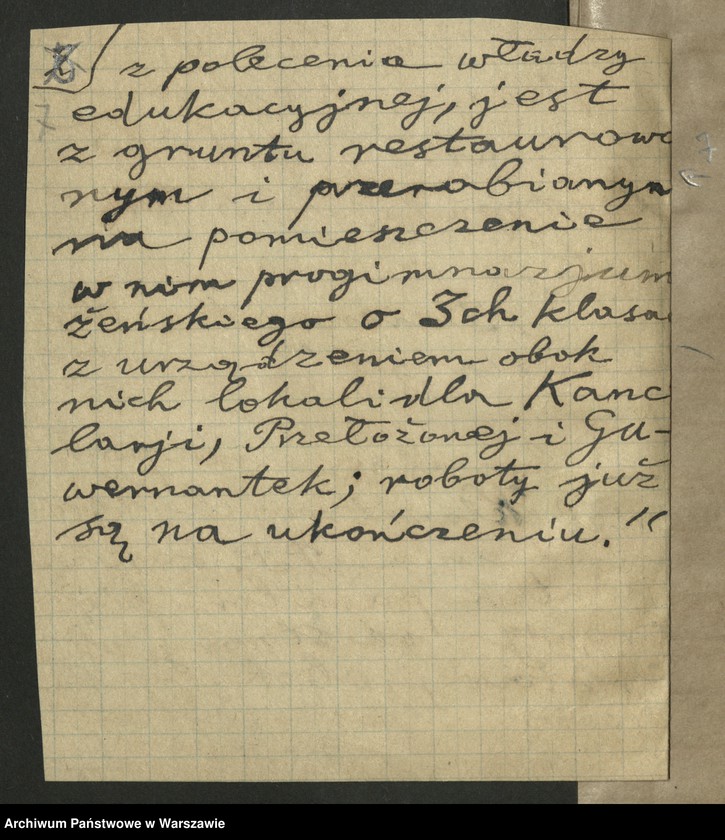 3
7
z polecenia władzy
edukacyjnej, jest
z gruntu restaurowa
nym i przerabianym
na pomieszczenie
w nim progimnazjum
żeńskiego o 3ch klasa
z urządzeniem obok
nich lokali dla Kanc
larji, Przełożonej i Gu-
wernantek; roboty już
są na ukończeniu."
7
Archiwum Państwowe w Warszawie